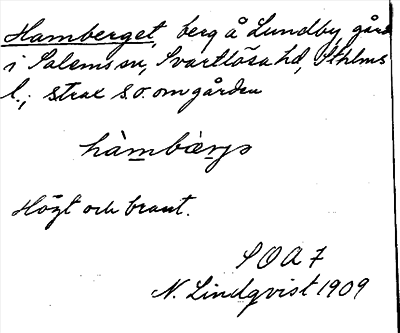 Hamberget, berg å Lundby gård
i Salems sn, Svartlösa hd, Sthlms
l.; strax s.o. om gården
hàmbæ̀rjə
Högt och brant.
SOA 7
N. Lindqvist 1909